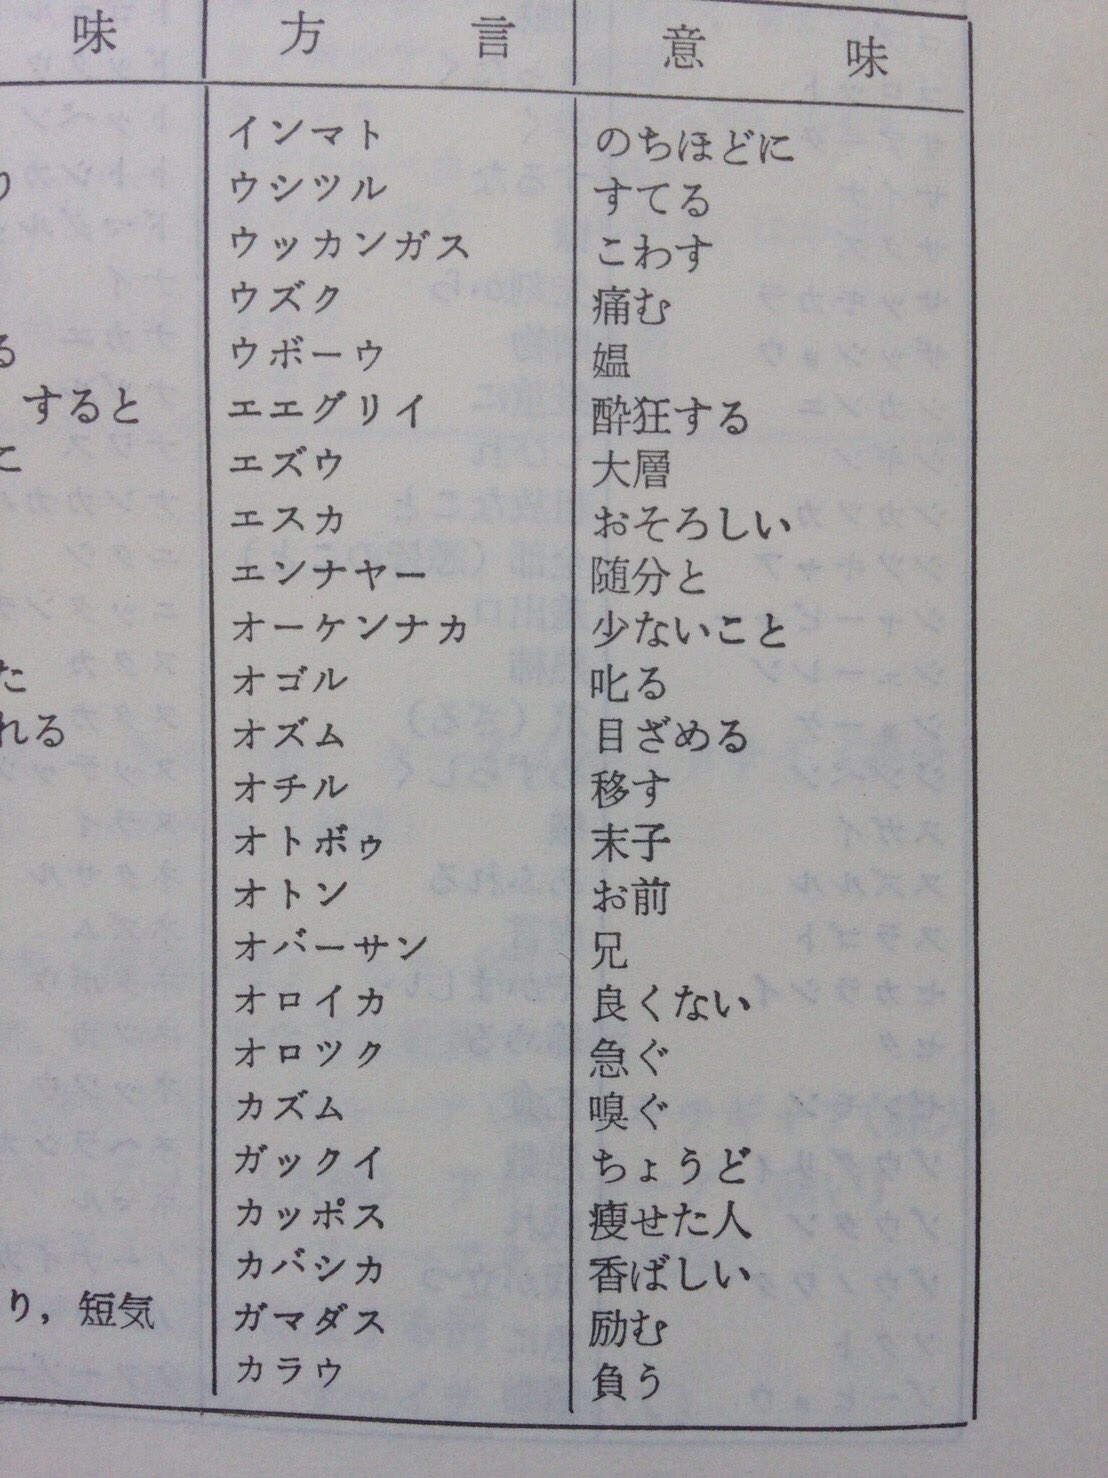 味 方言 意味
インマト のちほどに
ウシツル すてる
ウッカンガス こわす
ウズク 痛む
ウボーウ 媼
る
エエグリイ 酔狂する
すると
エズウ 大層
に
エスカ おそろしい
エンナヤー 随分と
オーケンナカ 少ないこと
オゴル 叱る
た
オズム 目ざめる
れる
オチル 移す
オトボゥ 末子
オトン お前
オバーサン 兄
オロイカ 良くない
オロツク 急ぐ
カズム 嗅ぐ
ガックイ ちょうど
カッポス 痩せた人
カバシカ 香ばしい
り，短気
ガマダス 励む
カラウ 負う